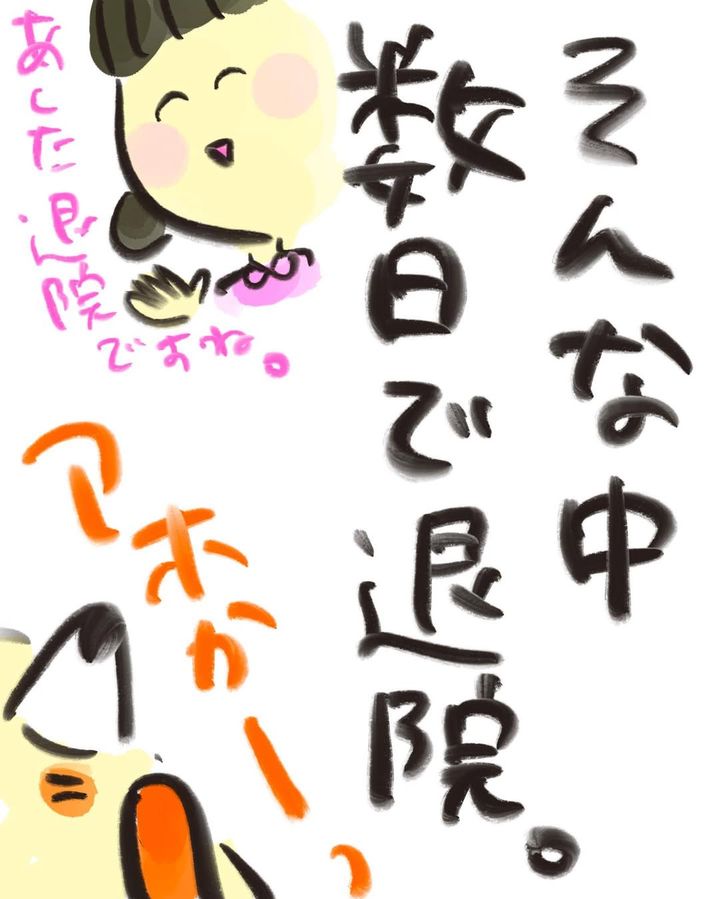 そんな中
数日で退院。
あした退院ですね。
アホかーっ